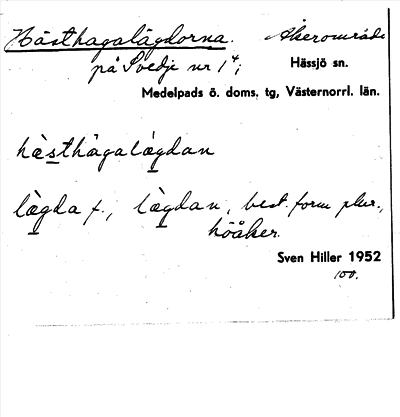 Hästhagalägdorna. Åkerområde
på Svedje nr 1⁴; Hässjö sn.
Medelpads ö. doms. tg, Västernorrl. län.
hæ̀sthàgalæ̀gdan
læ̀gda f., læ̀gdan, best. form plur.,
höåker.
Sven Hiller 1952
100.